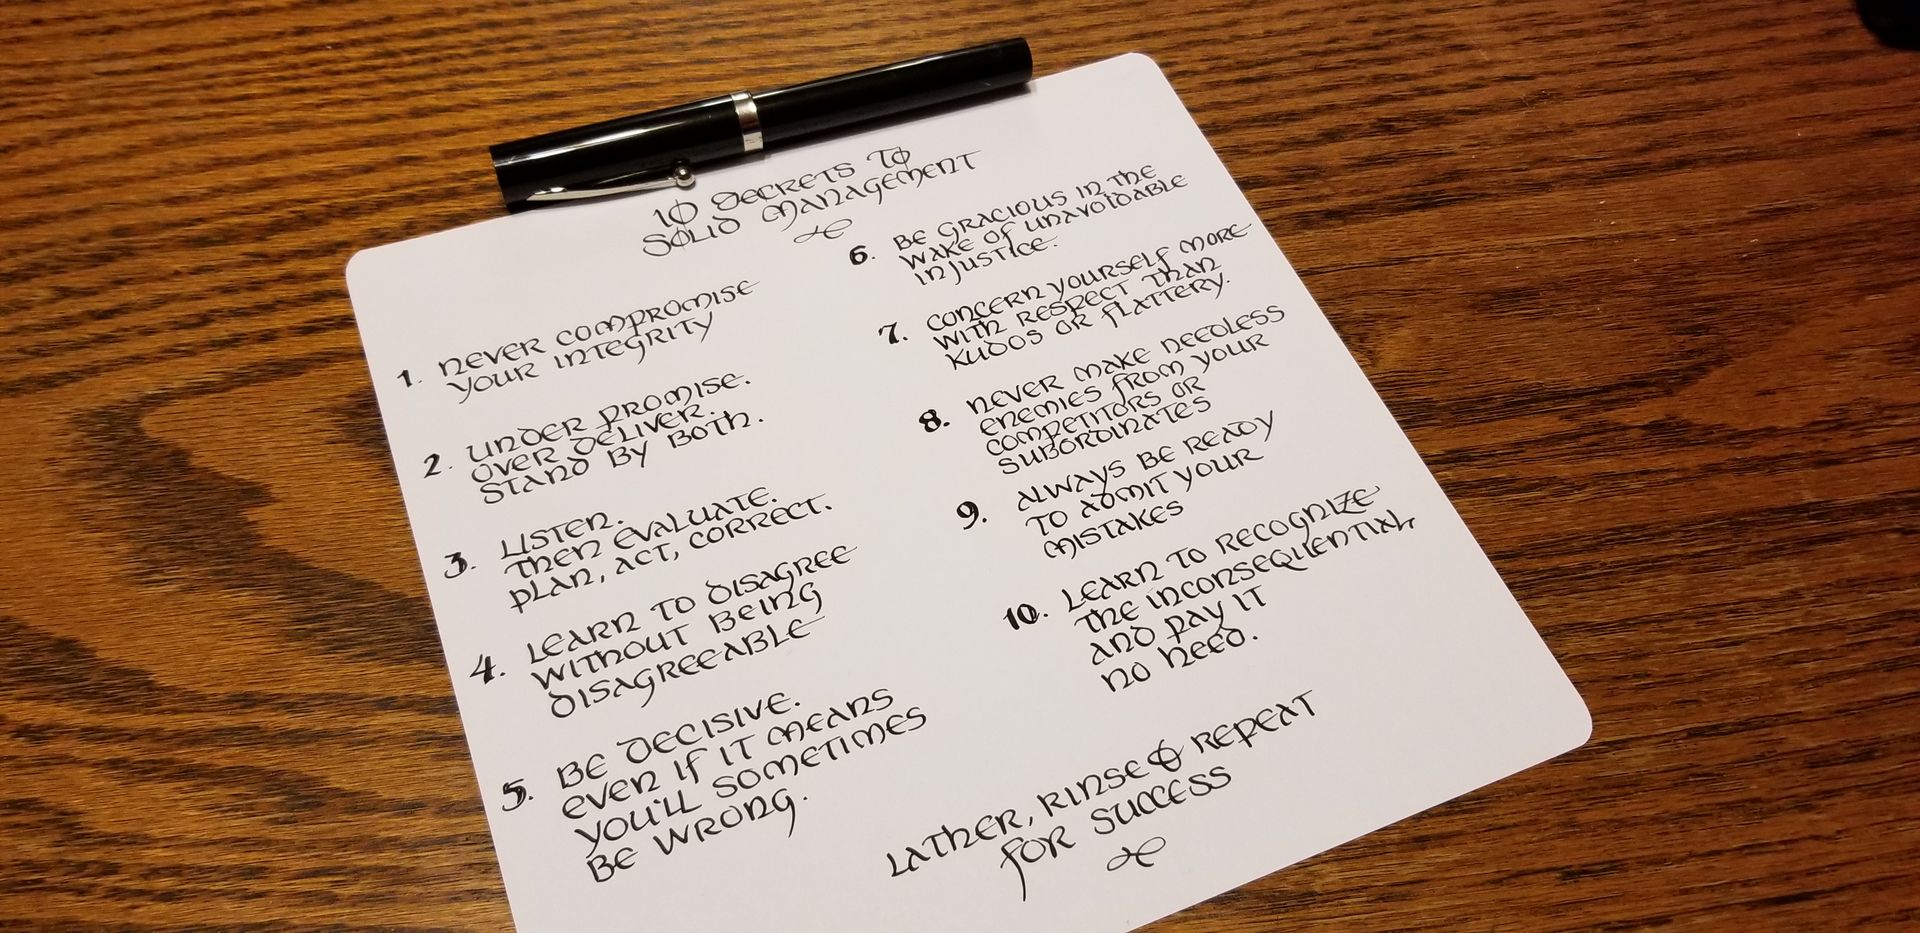 10 SECRETS TO
SOLID MANAGEMENT
1. NEVER COMPROMISE
YOUR INTEGRITY
2. UNDER PROMISE.
OVER DELIVER.
STAND BY BOTH.
3. LISTEN.
THEN EVALUATE.
PLAN, ACT, CORRECT.
4. LEARN TO DISAGREE
WITHOUT BEING
DISAGREEABLE
5. BE DECISIVE.
EVEN IF IT MEANS
YOU'LL SOMETIMES
BE WRONG.
6. BE GRACIOUS IN THE
WAKE OF UNAVOIDABLE
INJUSTICE.
7. CONCERN YOURSELF MORE
WITH RESPECT THAN
KUDOS OR FLATTERY.
8. NEVER MAKE NEEDLESS
ENEMIES FROM YOUR
COMPETITORS OR
SUBORDINATES
9. ALWAYS BE READY
TO ADMIT YOUR
MISTAKES
10. LEARN TO RECOGNIZE
THE INCONSEQUENTIAL,
AND PAY IT
NO HEED.
LATHER, RINSE & REPEAT
FOR SUCCESS